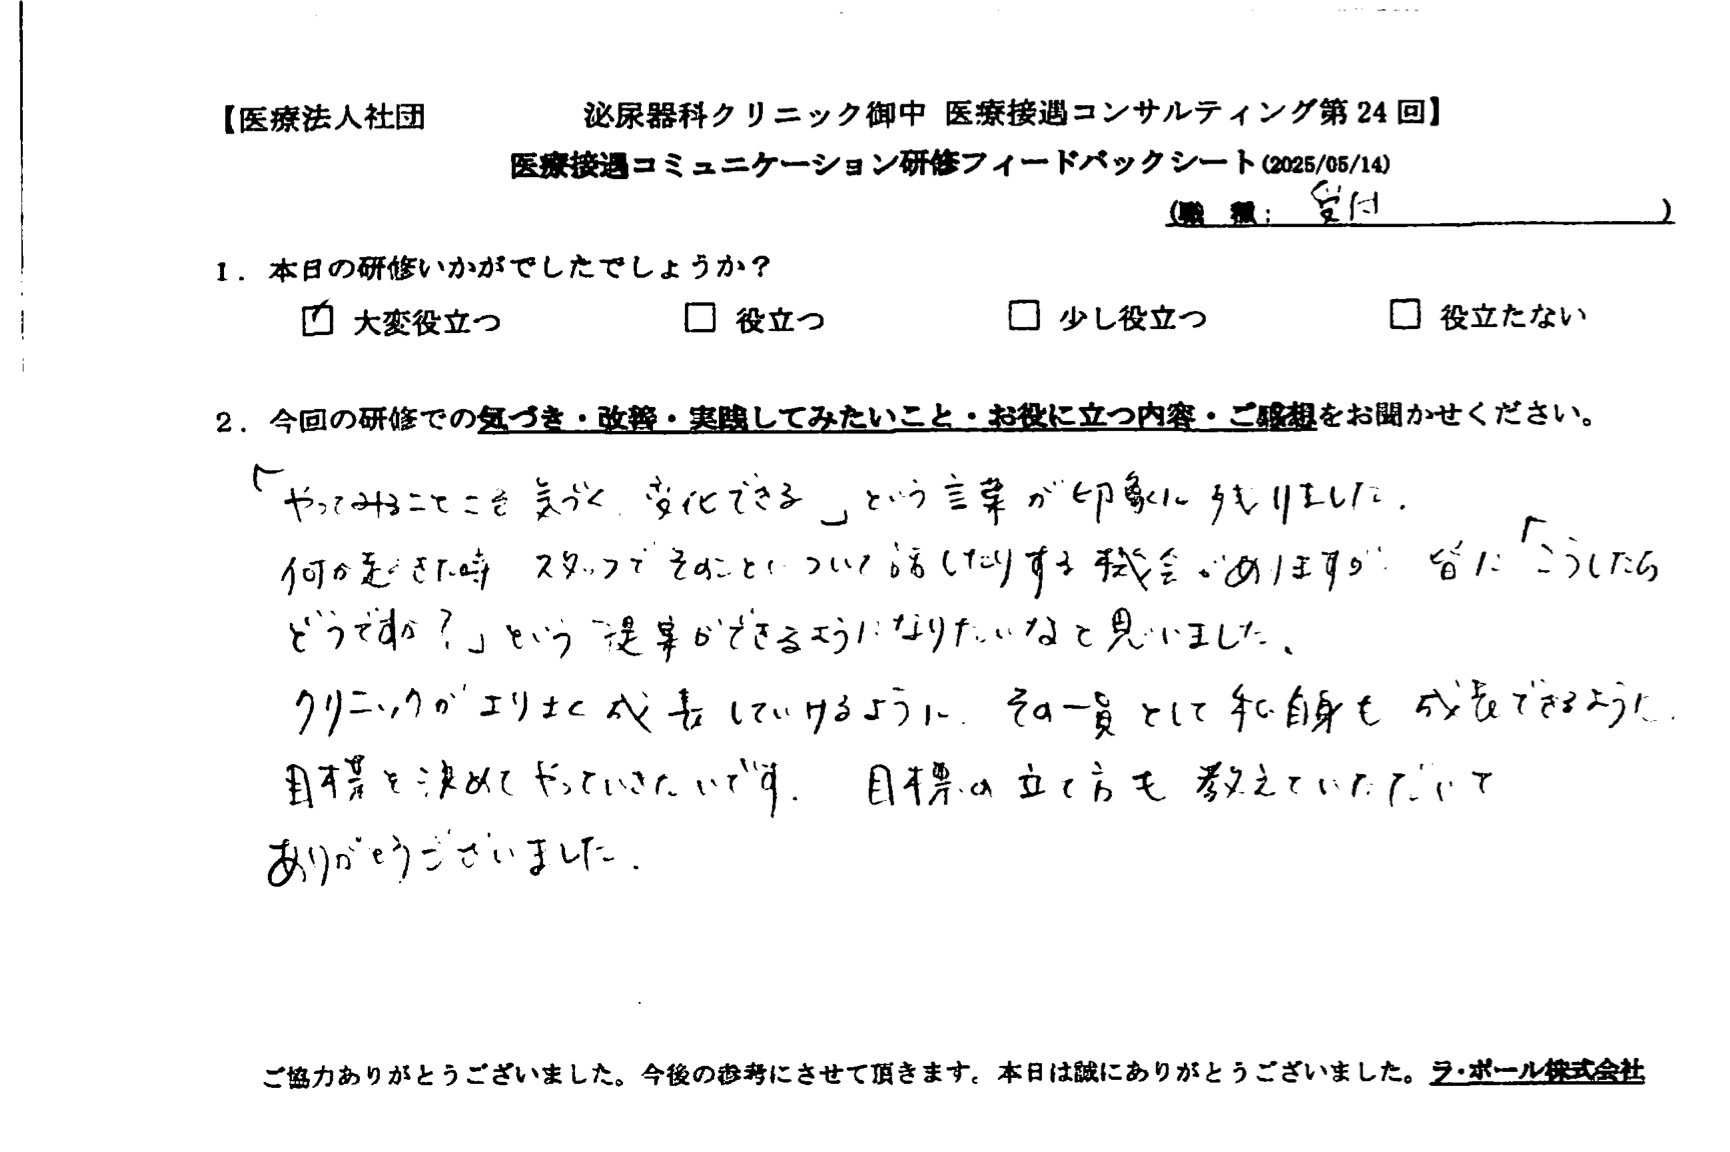 【医療法人社団 泌尿器科クリニック御中 医療接遇コンサルティング第24回】
医療接遇コミュニケーション研修フィードバックシート(2025/05/14)
(職 種: 受付 )
1. 本日の研修いかがでしたでしょうか?
☑ 大変役立つ □ 役立つ □ 少し役立つ □ 役立たない
2. 今回の研修での気づき・改善・実践してみたいこと・お役に立つ内容・ご感想をお聞かせください。
「やってみることこそ気づく、変化できる」という言葉が印象に残りました.
何か起きた時 スタッフでそのことについて話したりする機会がありますが 皆に「こうしたら
どうですか?」という提案ができるようになりたいなと思いました、
クリニックがより大きく成長していけるように、その一員として私自身も成長できるように、
目標を決めてやっていきたいです. 目標の立て方も教えていただいて
ありがとうございました.
ご協力ありがとうございました。今後の参考にさせて頂きます。本日は誠にありがとうございました。ラ・ポール株式会社